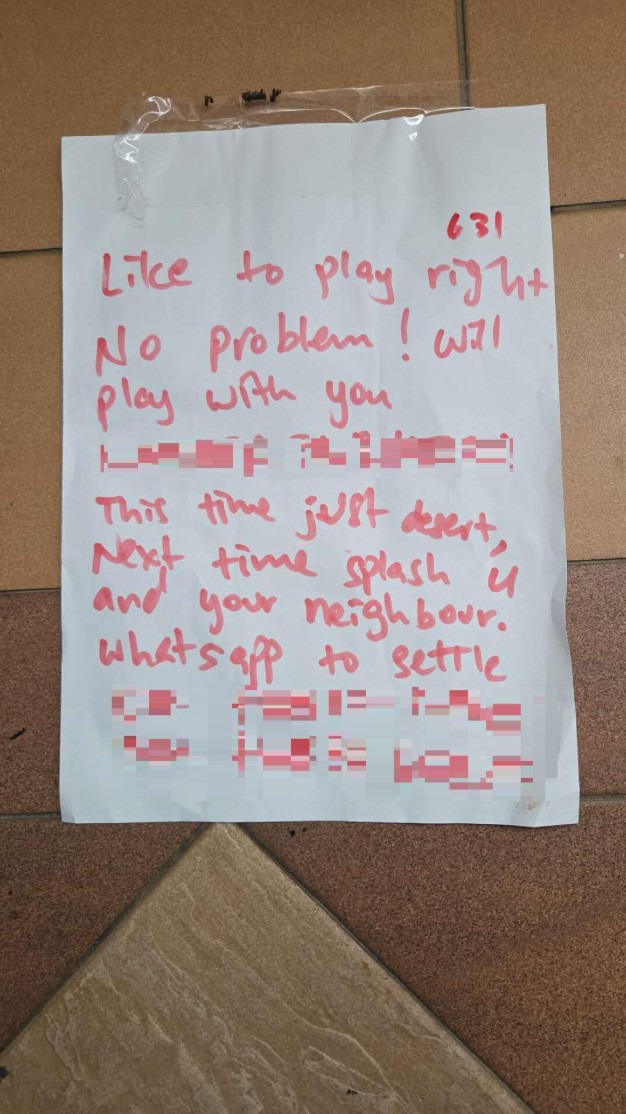 631
Like to play right
No problem! will
play with you
This time just desert,
Next time splash u
and your neighbour.
whatsapp to settle